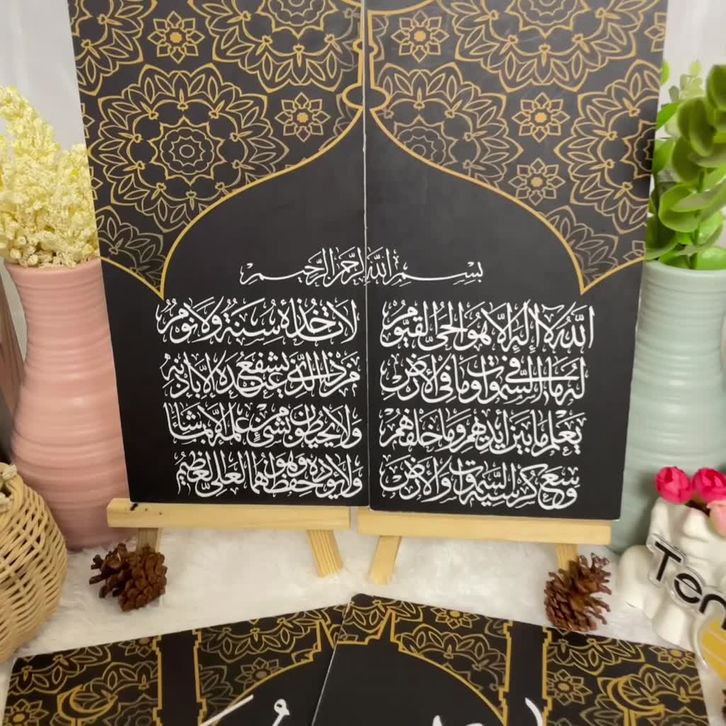 بِسْمِ اللَّهِ الرَّحْمَٰنِ الرَّحِيمِ
اللَّهُ لَا إِلَٰهَ إِلَّا هُوَ الْحَيُّ الْقَيُّومُ لَا تَأْخُذُهُ سِنَةٌ وَلَا نَوْمٌ
لَهُ مَا فِي السَّمَاوَاتِ وَمَا فِي الْأَرْضِ مَنْ ذَا الَّذِي يَشْفَعُ عِنْدَهُ إِلَّا بِإِذْنِهِ
يَعْلَمُ مَا بَيْنَ أَيْدِيهِمْ وَمَا خَلْفَهُمْ وَلَا يُحِيطُونَ بِشَيْءٍ مِنْ عِلْمِهِ إِلَّا بِمَا شَاءَ
وَسِعَ كُرْسِيُّهُ السَّمَاوَاتِ وَالْأَرْضَ وَلَا يَئُودُهُ حِفْظُهُمَا وَهُوَ الْعَلِيُّ الْعَظِيمُ